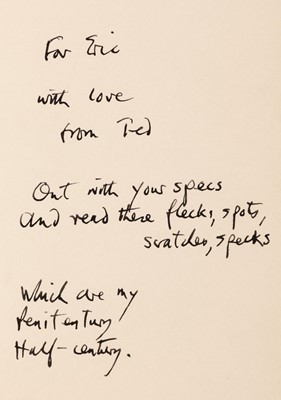 For Eric
with love
from Ted
Out with your specs
And read these flecks, spots,
scratches, specks
Which are my
Penitentury
Half-century.